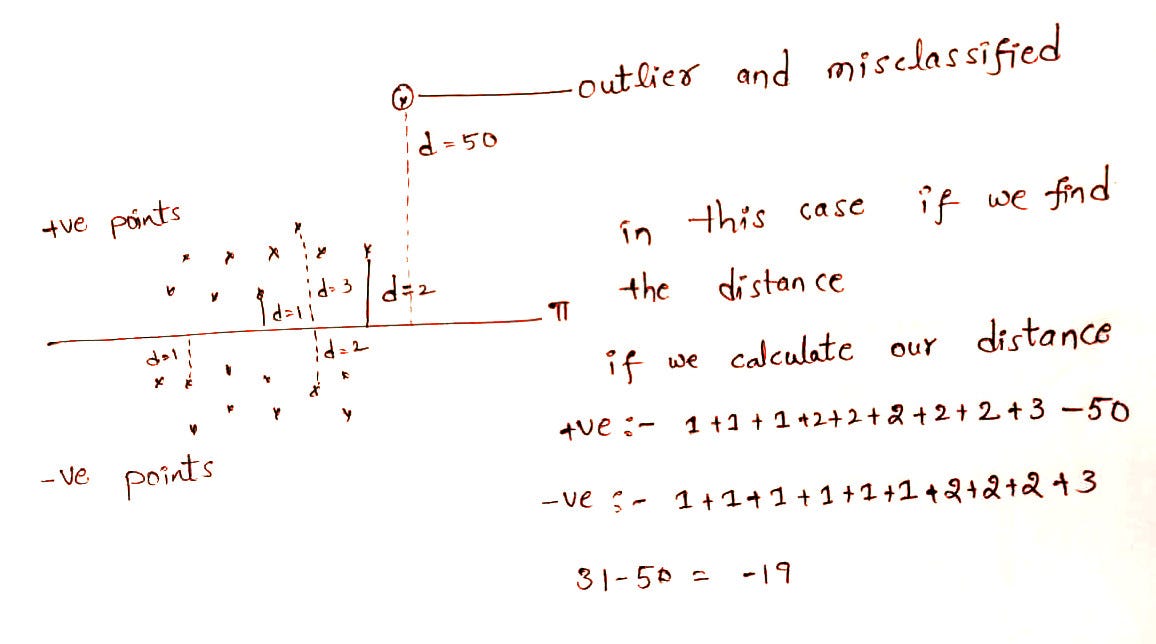 outlier and misclassified
d = 50
+ve points
in this case if we find
the distance
d=3
d=2
d=1
π
if we calculate our distance
d=1
d=2
+ve :- 1+1+1+2+2+2+2+2+3-50
-ve points
-ve :- 1+1+1+1+1+1+2+2+2+3
31-50 = -19